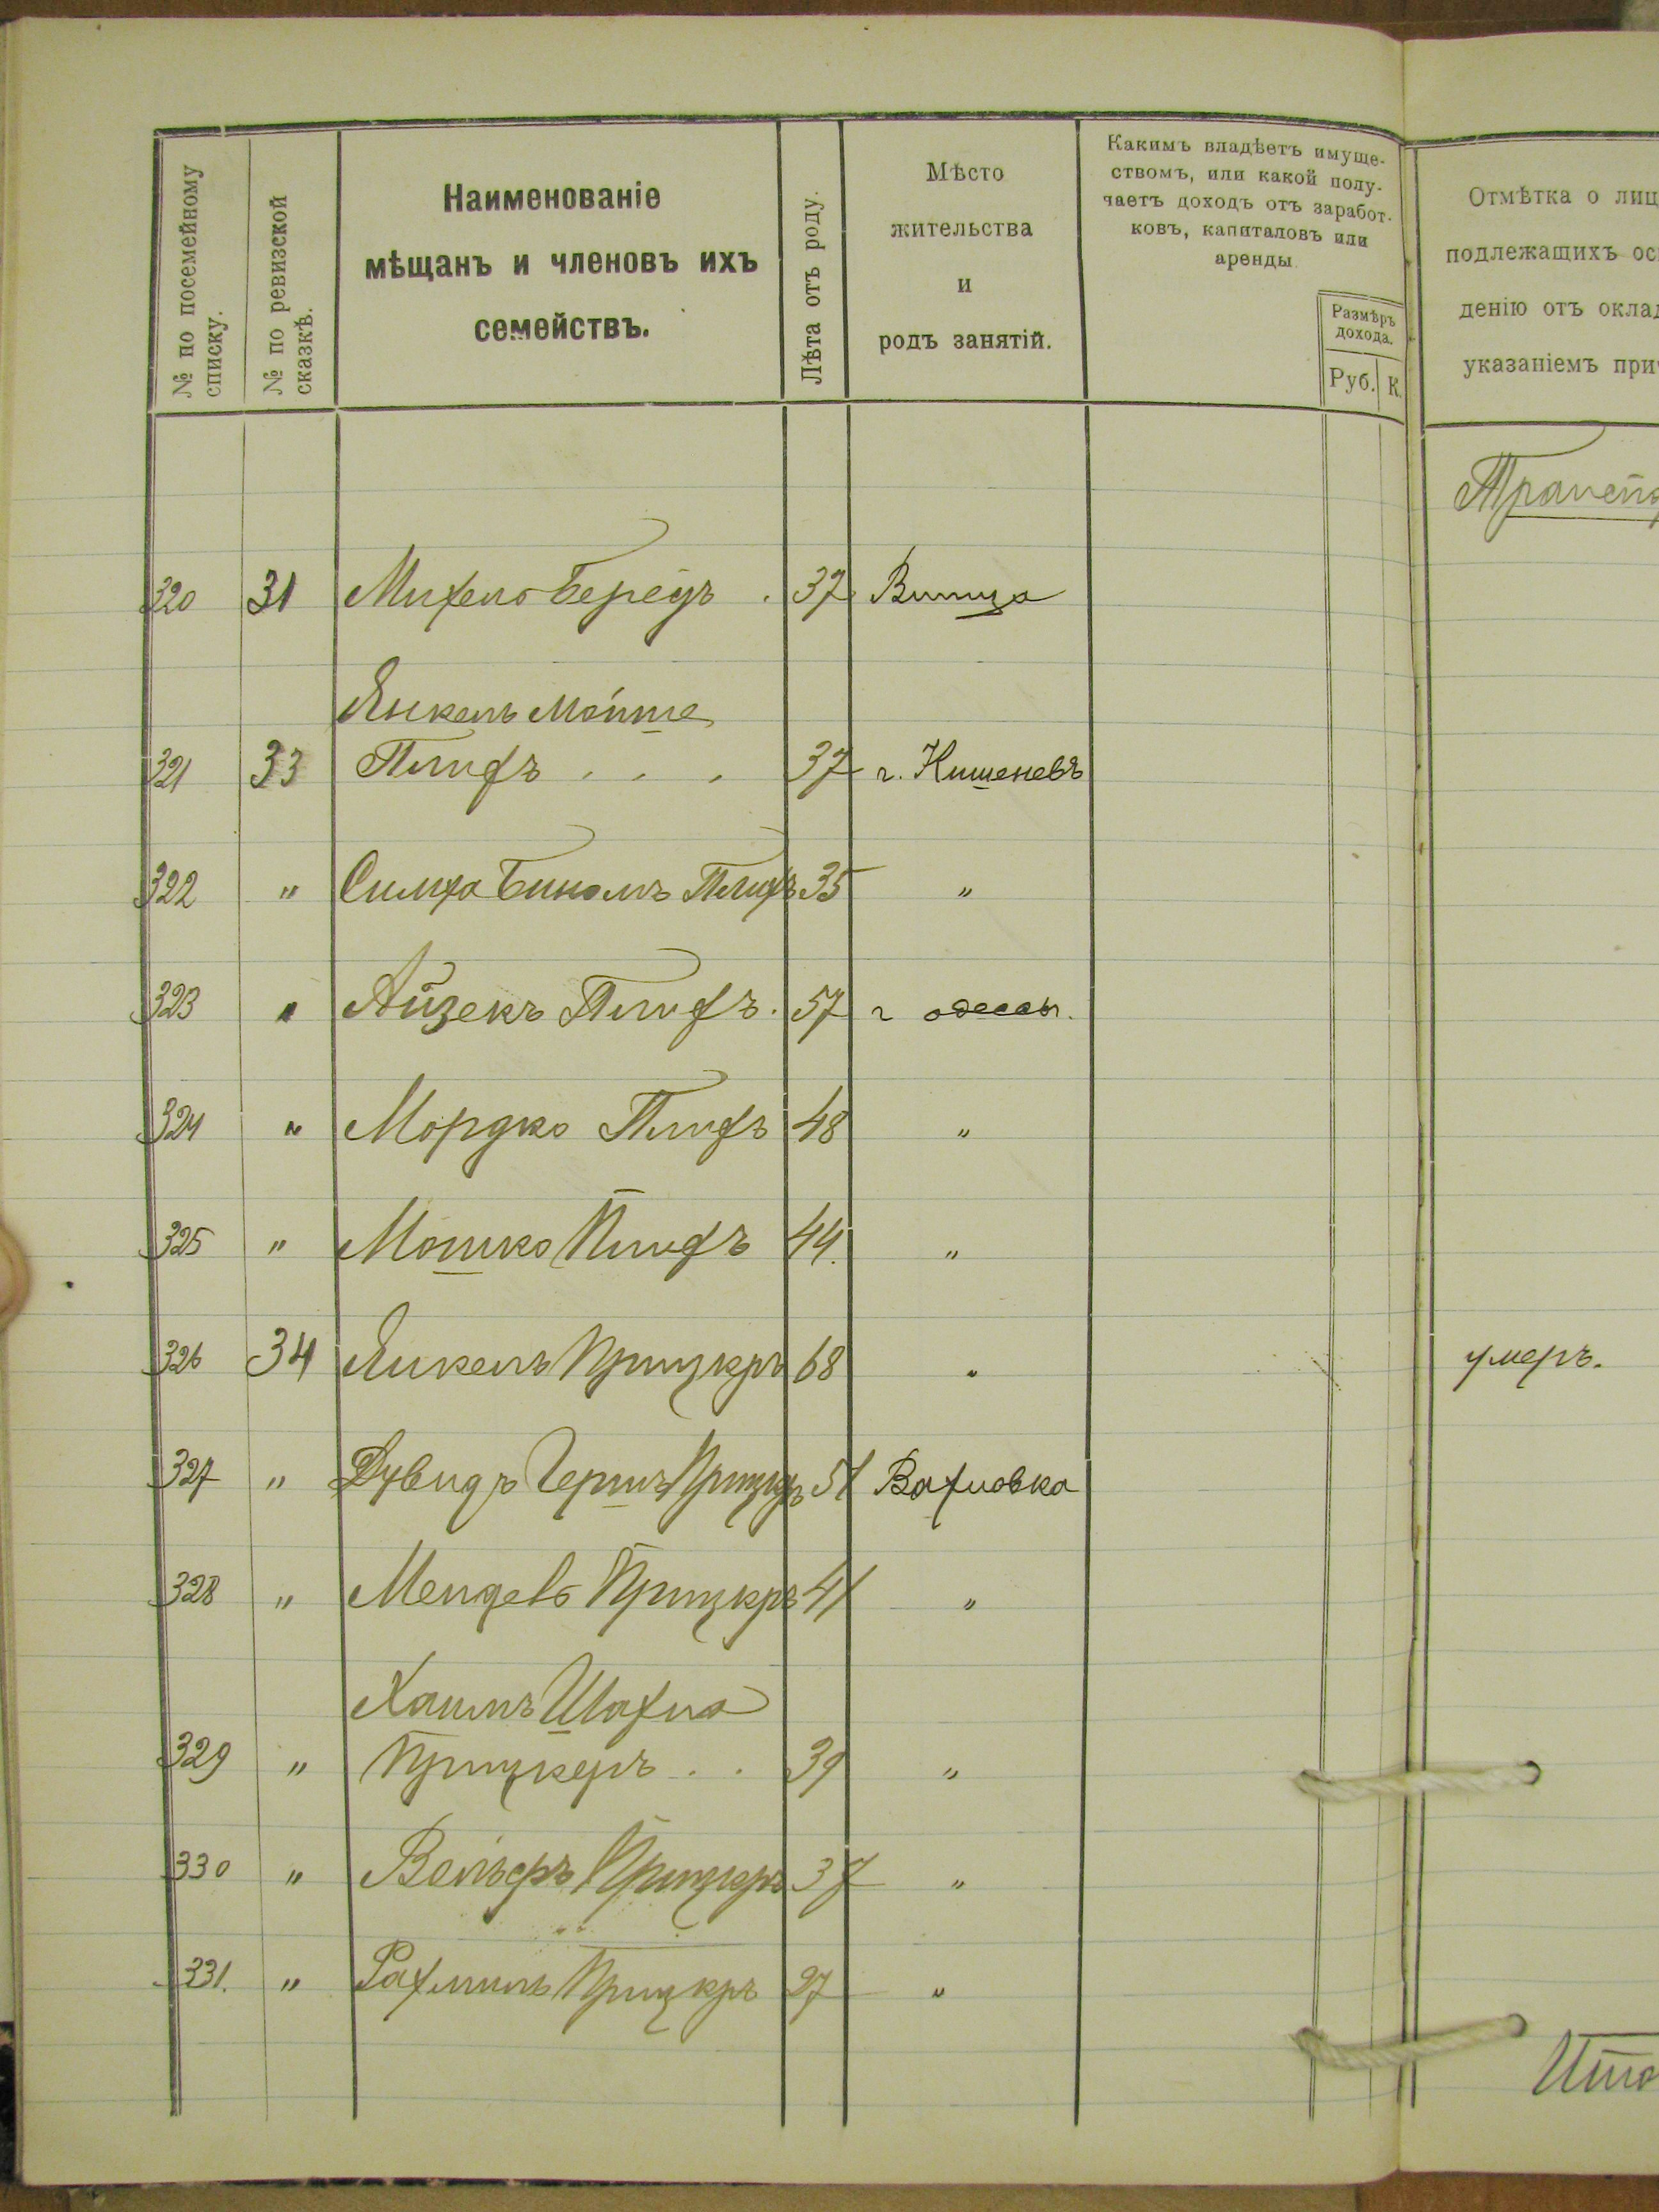 № по посемейному
списку.
№ по ревизской
сказкѣ.
Наименованіе
мѣщанъ и членовъ ихъ
семействъ.
Лѣта отъ роду.
Мѣсто
жительства
и
родъ занятій.
Какимъ владѣетъ имуще-
ствомъ, или какой полу-
чаетъ доходъ отъ заработ-
ковъ, капиталовъ или
аренды.
Размѣръ
дохода.
Руб. К.
Отмѣтка о лиц
подлежащихъ
денію отъ оклад
указаніемъ при
320 31 Михель 37
Янкель Мойше
321 33 Плифъ . . . 37 г. Кишеневъ
322 " Симха Биномъ Плифъ 35 "
323 " Айзекъ Плифъ. 57 г одессы.
324 " Мордко Плифъ 48 "
325 " Мошко Плифъ 44. "
326 34 Янкель Прицкръ 68 " умеръ.
327 " Дувидъ Гершъ Прицкръ 51 Вахновка
328 " Мендель Прицкръ 41 "
Хаимъ Шахна
329 " Прицкеръ . . 39 "
330 " Прицкеръ 37 "
331. " Рахмиль Прицкръ 27 "